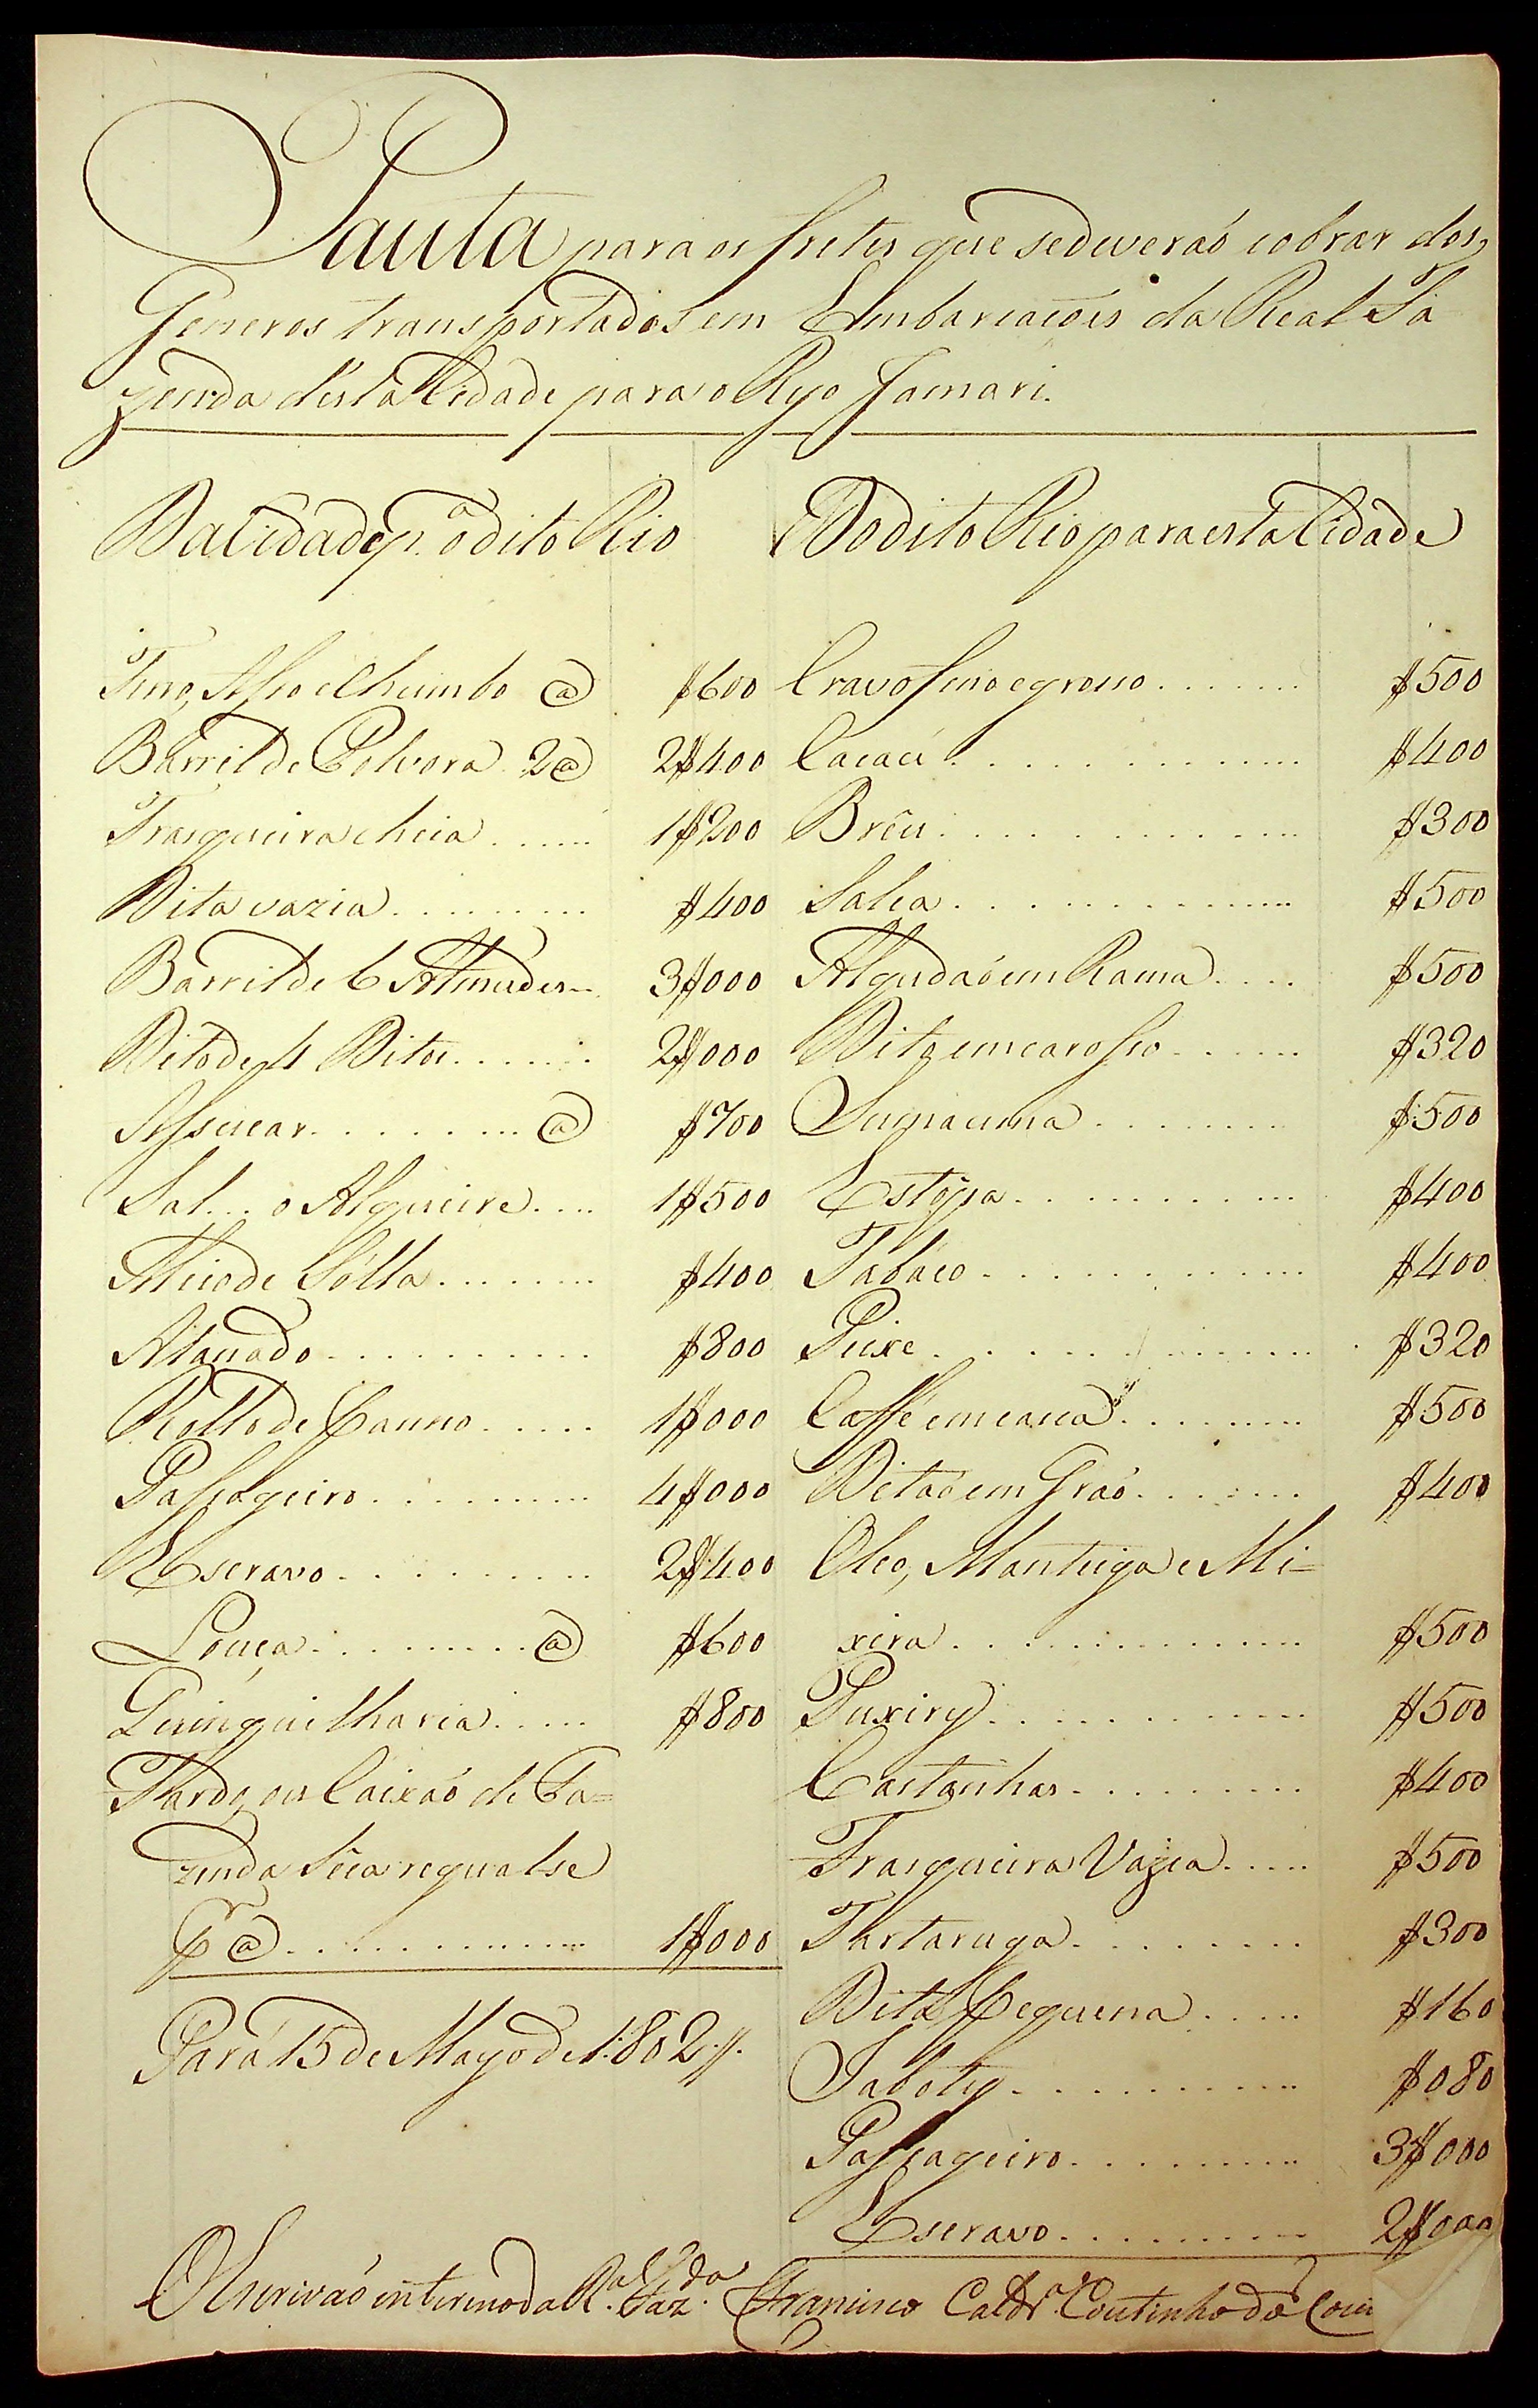 Pauta para os fretes que se deveraó cobrar dos
Generos transportados em Embarcaçoẽs da Real Fa
zenda desta Cidade para o Ryo Jamari.
Da Cidade p.ª o dito Rio
Ferro, Asso e Chumbo @ $600
Barril de Polvora 2@ 2$400
Frasqueira cheia ...... 1$200
Dita vazia ......... $400
Barril de 6 Almudes .. 3$000
Dito de 4 Ditos ....... 2$000
Assucar ........ @ $700
Sal ... o Alqueire .... 1$500
Meio de Sólla ........ $400
Atanado ........... $800
Rollo de Panno ..... 1$000
Passageiro .......... 4$000
Escravo .......... 2$400
Louça .......... @ $600
Quinquilharia ..... $800
Fardo, ou Caixaó de Fa=
zenda Sêca regualse
pr @ ............. 1$000
Pará 15 de Mayo de 1:802 //.
Do dito Rio para esta Cidade
Cravo fino e grosso ....... $500
Cacaú ............... $400
Brêu .............. $300
Salca .............. $500
Algudaó em Rama .... $500
Dito em carosso ...... $320
Sumauma ........ $500
Estôpa ........... $400
Tabáco ............. $400
Peixe .............. $320
Caffé em casca ........ $500
Ditaó em Graó ....... $400
Oleo, Manteiga e Mi=
xira .............. $500
Puxiry ............ $500
Castanhas ......... $400
Frasqueira Vazia ..... $500
Tartaruga ......... $300
Dita Pequena ..... $160
Jaboty ........... $080
Passageiro .......... 3$000
Escravo .......... 2$000
O Escrivaó interino da R.ˡ Faz.da Francisco Caldr.ª Coutinho do Cou